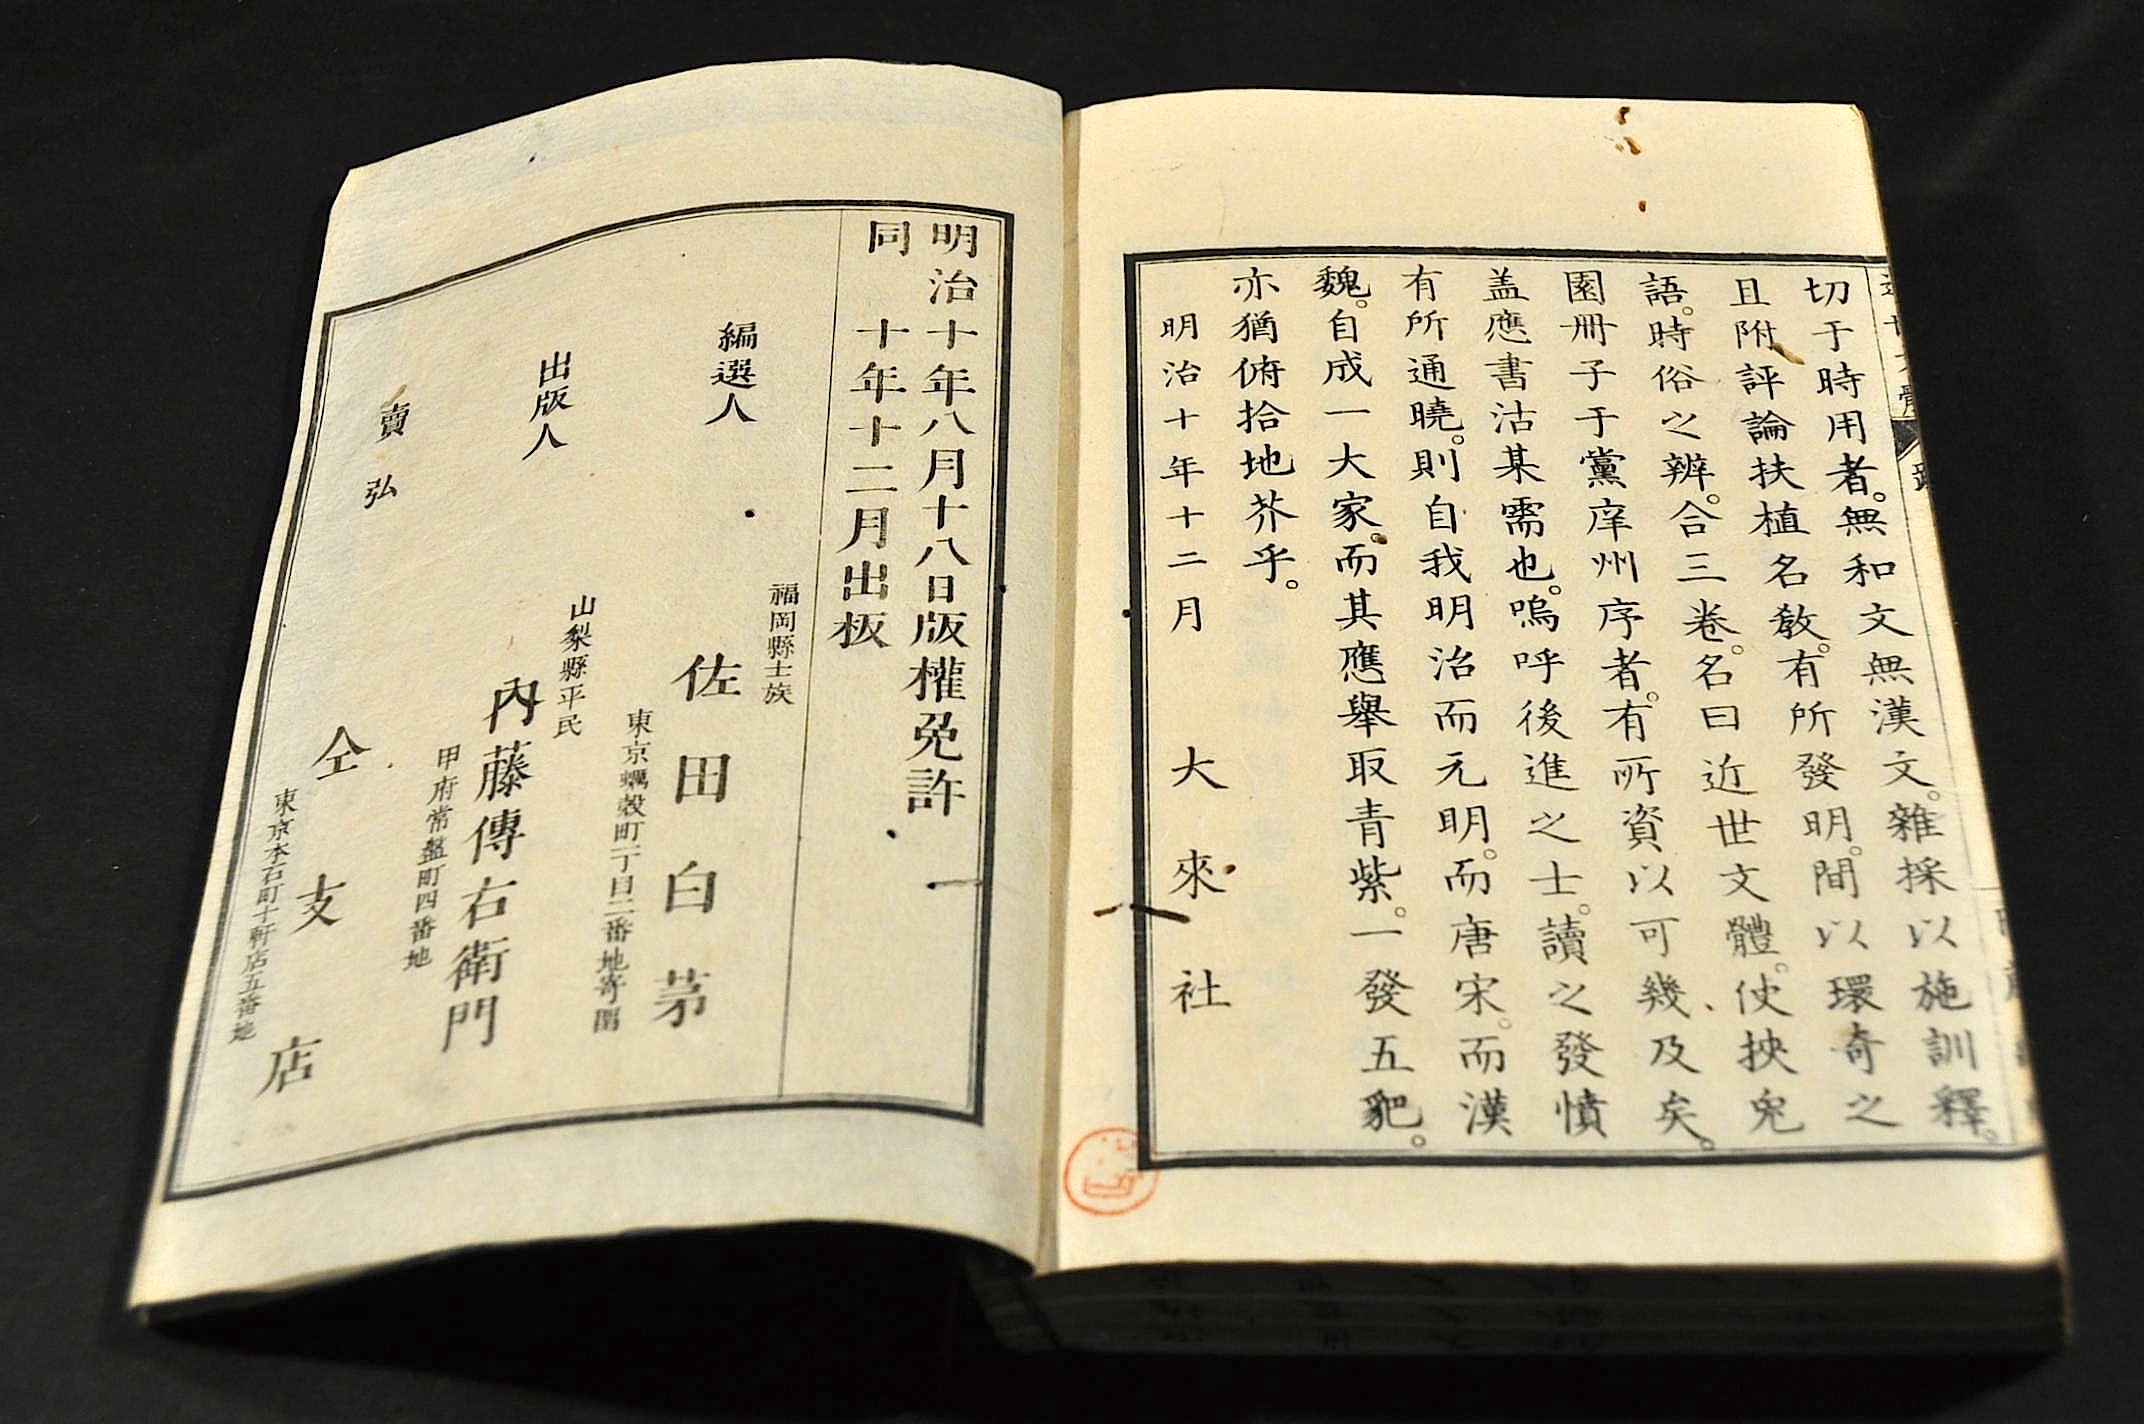 切于時用者。無和文無漢文。雜採以施訓釋。
且附評論扶植名教。有所發明。間以環奇之
語。時俗之辨。合三卷。名曰近世文體。使挾兔
園冊子于黨庠州序者。有所資以可幾及矣。
盖應書沽某需也。嗚呼後進之士。讀之發憤
有所通曉。則自我明治而元明。而唐宋。而漢
魏。自成一大家。而其應舉取青紫。一發五豝。
亦猶俯拾地芥乎。
明治十年十二月 大來社
明治十年八月十八日版權免許
同 十年十二月出板
福岡縣士族
編選人 佐田白茅
東京蠣殼町二丁目二番地寄留
山梨縣平民
出版人 內藤傳右衛門
甲府常盤町四番地
賣弘 仝支店
東京本石町十軒店五番地